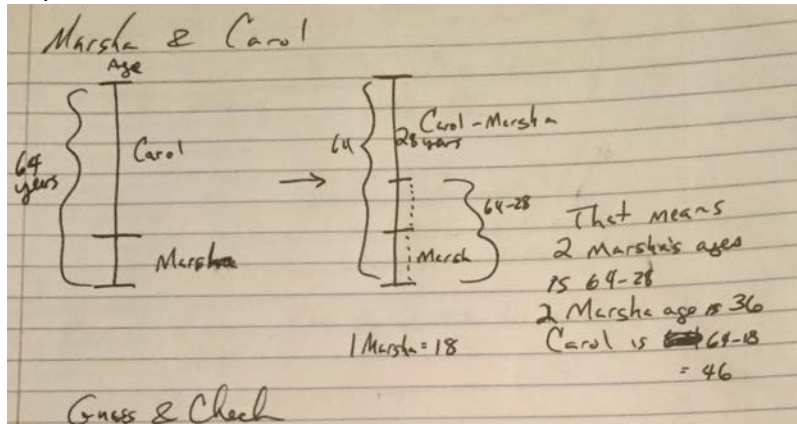 Marsha & Carol
Age
64 years
Carol
Marsha
64
Carol - Marsha
28 years
Marsh
64-28
That means
2 Marsha's ages
is 64-28
2 Marsha age is 36
Carol is 64-18
= 46
1 Marsha = 18
Guess & Check